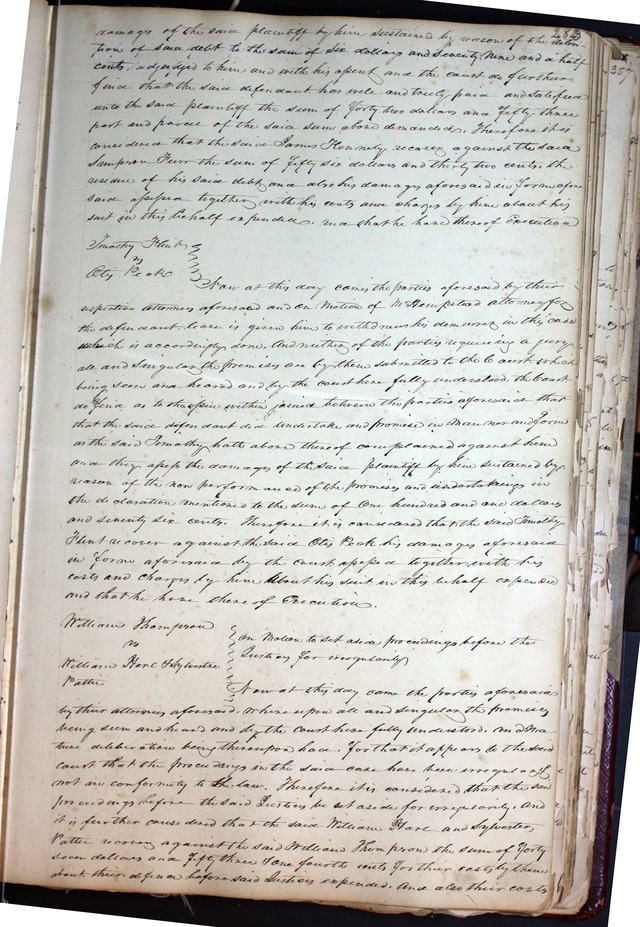 damages of the said plaintiff by him sustained by reason of the deten-
tion of said debt to the sum of Six dollars and seventy Nine and a half
cents, adjudged to him and with his assent and the court do further
find that the said defendant has well and truly paid and satisfied
unto the said plaintiff the sum of forty two dollars and fifty three
part and parcel of the said sum above demanded. Therefore it is
considered that the said James Kennely recover against the said
Sampson Furr the sum of fifty six dollars and thirty two cents the
residue of his said debt, and also his damages aforesaid in forme afore
said assessed together with his costs and charges by him about his
suit in this behalf expended. and that he have thereof Execution
Timothy Flint
vs
Otis Peak
Now at this day comes the parties aforesaid by their
respective attorneys aforesaid and on Motion of Mr Hempstead attorney for
the defendant leave is given him to withdraw his demurrer in this case
which is accordingly done. And neither of the parties requiring a jury
all and singular the premises are by them submitted to the Court which
being seen and heard and by the court here fully understood. the Court
do find as to the issue within joined between the parties aforesaid that
that the said defendant did undertake and promise in Manner and form
as the said Timothy hath above thereof complained against him
and they assess the damages of the said plaintiff by him sustained by
reason of the non performance of the promises and undertakings in
the declaration mentioned to the sum of One hundred and one dollars
and seventy six cents. Therefore it is considered that the said Timothy
Flint recover against the said Otis Peak his damages aforesaid
in forme aforesaid by the court assessed together with his
costs and charges by him about his suit in this behalf expended
and that he have thereof Execution.
William Thompson
vs
William Harl & Sylvestre
Pattie
on Motion to set aside proceedings before the
Justices for irregularity
Now at this day came the parties aforesaid
by their attorneys aforesaid. Whereupon all and singular the premises
being seen and heard and by the court here fully understood. and Ma-
ture deliberation being thereupon had, for that it appears to the said
court that the proceedings in the said case have been irregular &
not in conformity to the law. Therefore it is considered that the said
proceedings before the said Justices be set aside for irregularity. And
it is further considered that the said William Harl and Sylvester
Pattie recover against the said William Thompson the sum of forty
seven dollars and fifty three & one fourth cents for their costs by them
about their defence before said Justices expended. And also their costs
357